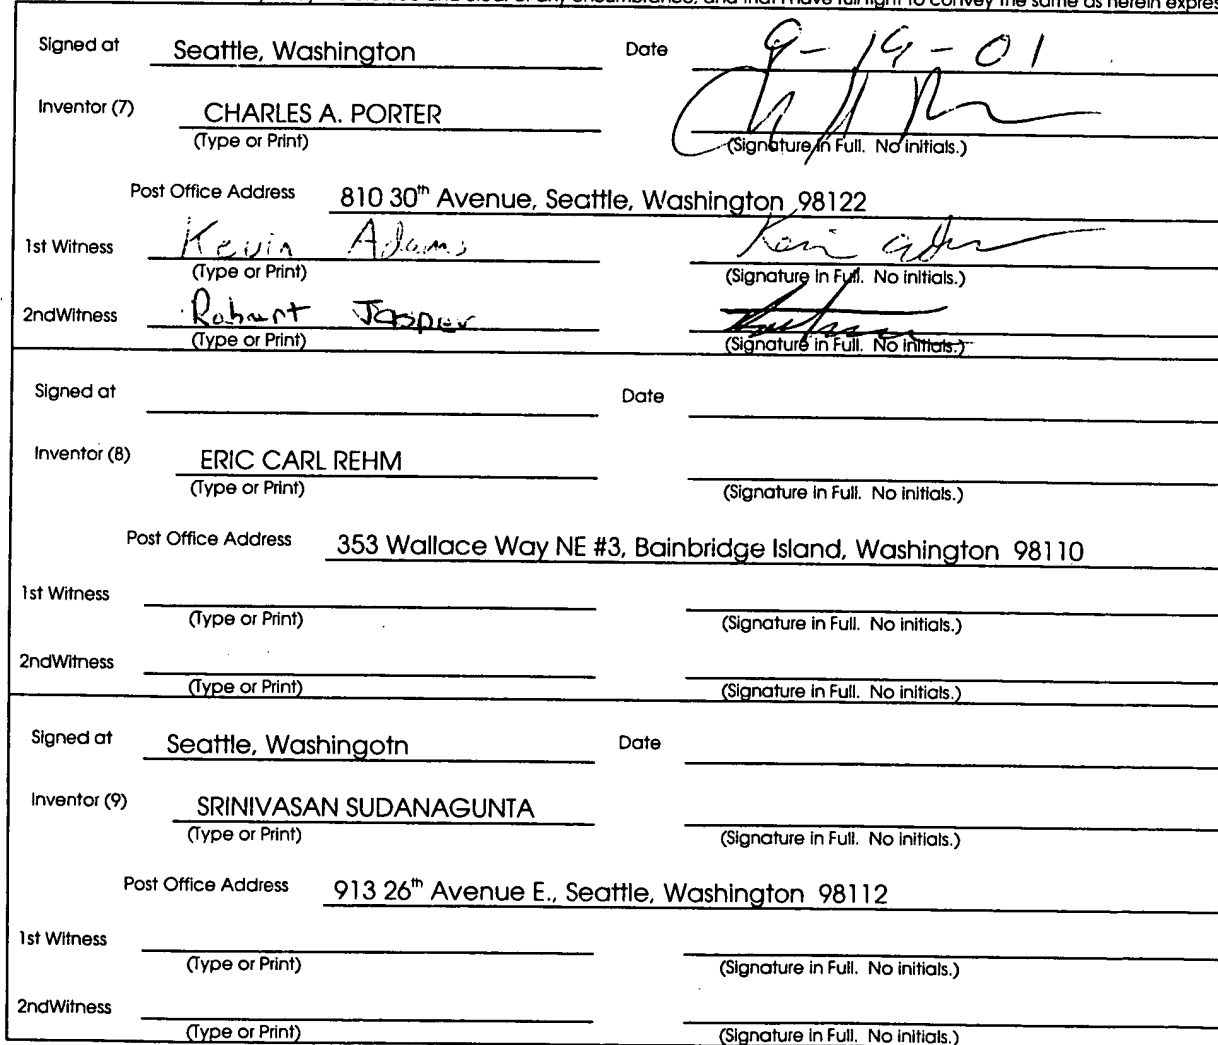 and clear of any encumbrance, and that I have full right to convey the same as herein expres
Signed at Seattle, Washington Date 9-19-01
Inventor (7) CHARLES A. PORTER
(Type or Print) (Signature in Full. No initials.)
Post Office Address 810 30th Avenue, Seattle, Washington 98122
1st Witness Kevin Adams
(Type or Print) (Signature in Full. No initials.)
2ndWitness Robert Jasper
(Type or Print) (Signature in Full. No initials.)
Signed at Date
Inventor (8) ERIC CARL REHM
(Type or Print) (Signature in Full. No initials.)
Post Office Address 353 Wallace Way NE #3, Bainbridge Island, Washington 98110
1st Witness
(Type or Print) (Signature in Full. No initials.)
2ndWitness
(Type or Print) (Signature in Full. No initials.)
Signed at Seattle, Washingotn Date
Inventor (9) SRINIVASAN SUDANAGUNTA
(Type or Print) (Signature in Full. No initials.)
Post Office Address 913 26th Avenue E., Seattle, Washington 98112
1st Witness
(Type or Print) (Signature in Full. No initials.)
2ndWitness
(Type or Print) (Signature in Full. No initials.)